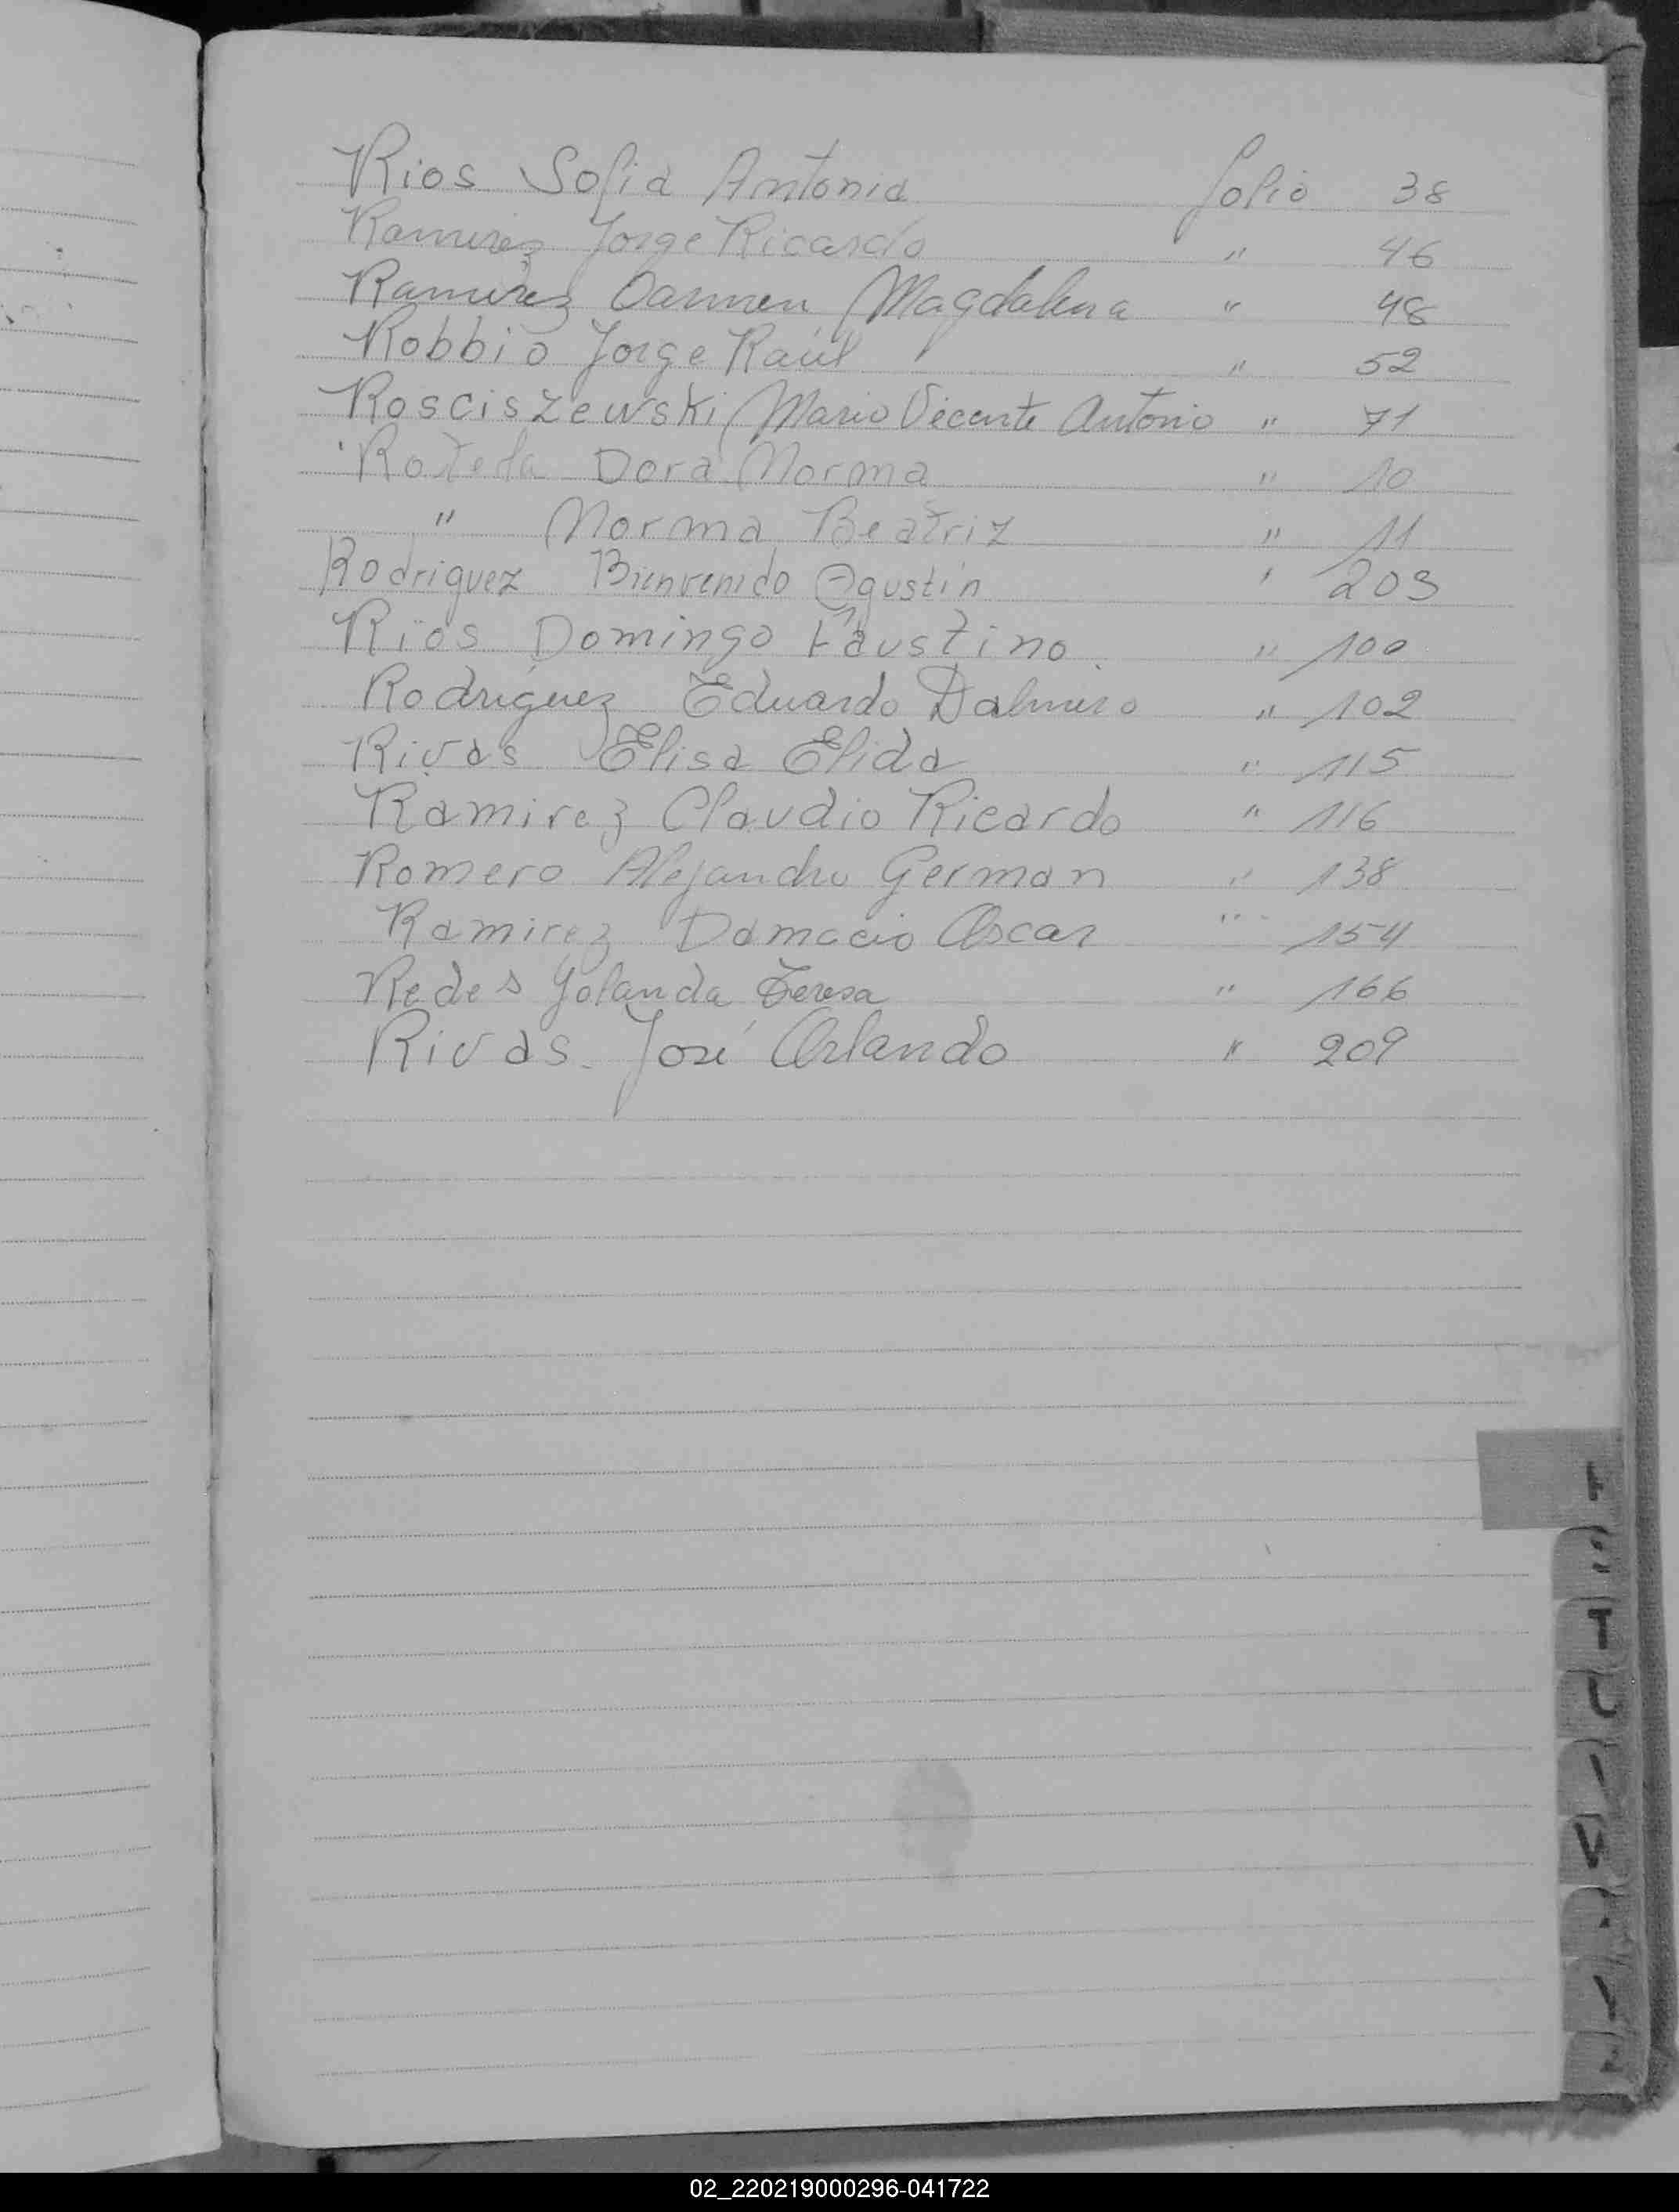 Rios Sofia Antonia folio 38
Ramirez Jorge Ricardo " 46
Ramirez Carmen Magdalena " 48
Robbio Jorge Raúl " 52
Rosciszewski Mario Vicente Antonio " 71
Rotela Dora Norma " 10
" Norma Beatriz " 11
Rodriguez Bienvenido Agustin " 203
Rios Domingo Faustino " 100
Rodriguez Eduardo Dalmiro " 102
Rivas Elisa Elida " 115
Ramirez Claudio Ricardo " 116
Romero Alejandro German " 138
Ramirez Damacio Oscar " 154
Redes Yolanda Teresa " 166
Rivas José Orlando " 209
T
V
02_220219000296-041722